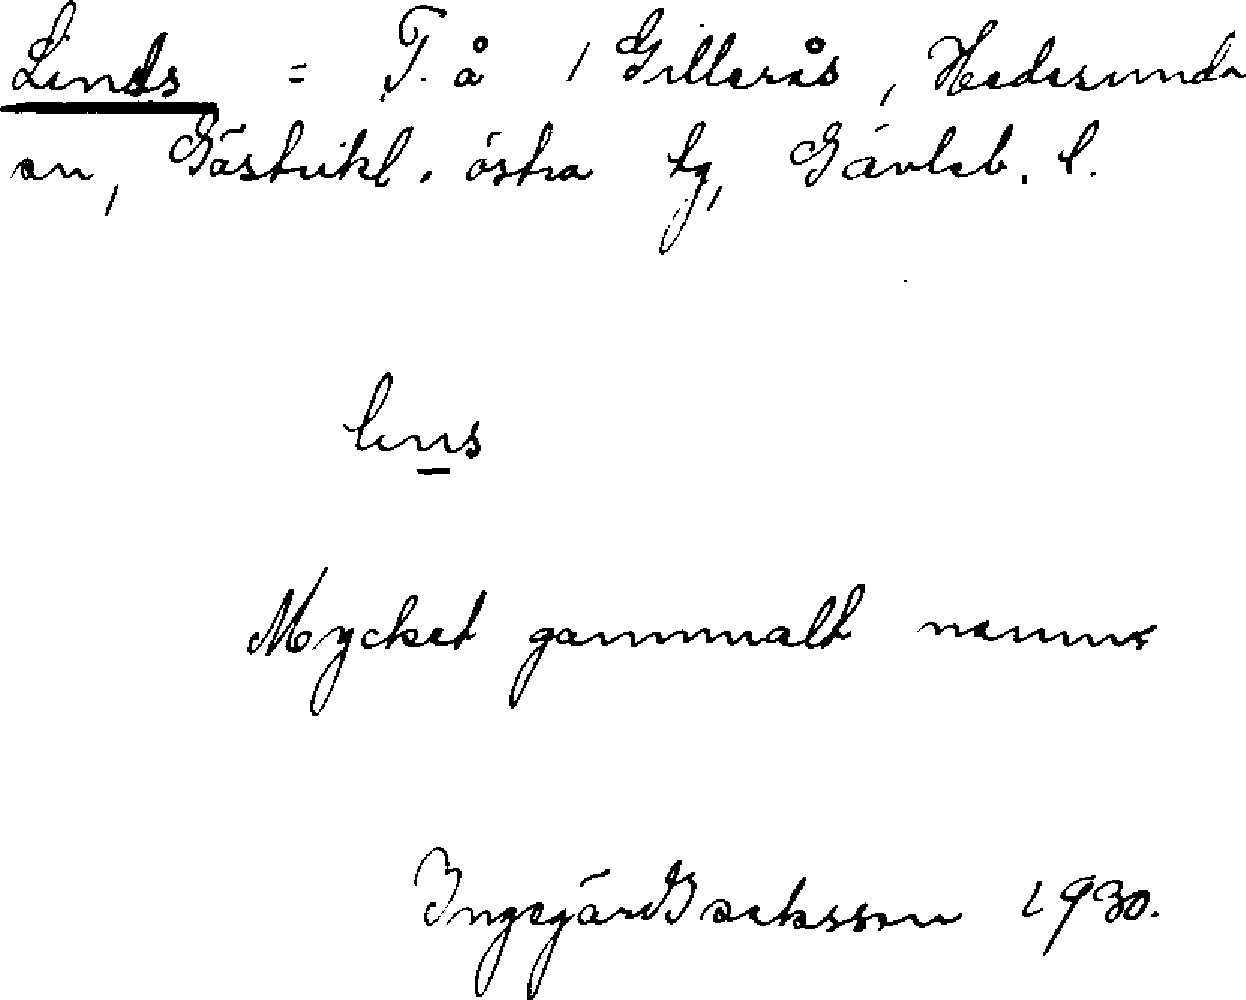 Linds = T. å i Gillerås, Hedesunda
sn, Gästrikl. östra tg, Gävleb. l.
lins
Mycket gammalt namn.
Ingegärd Isaksson 1930.